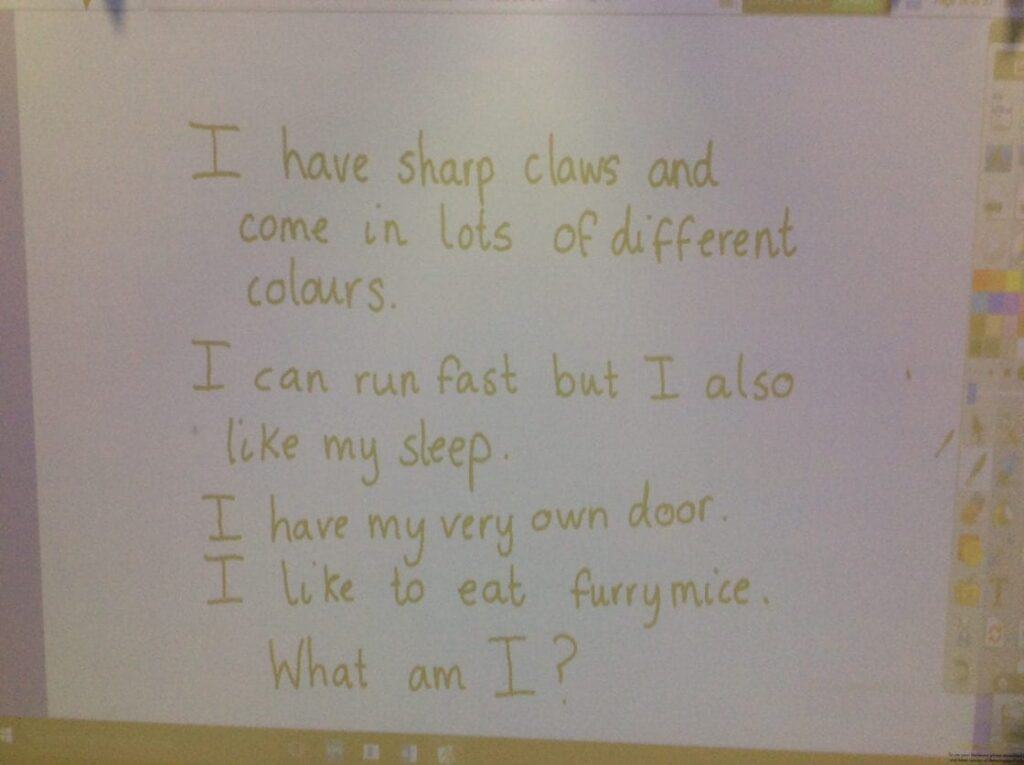 I have sharp claws and
come in lots of different
colours.
I can run fast but I also
like my sleep.
I have my very own door.
I like to eat furry mice.
What am I?